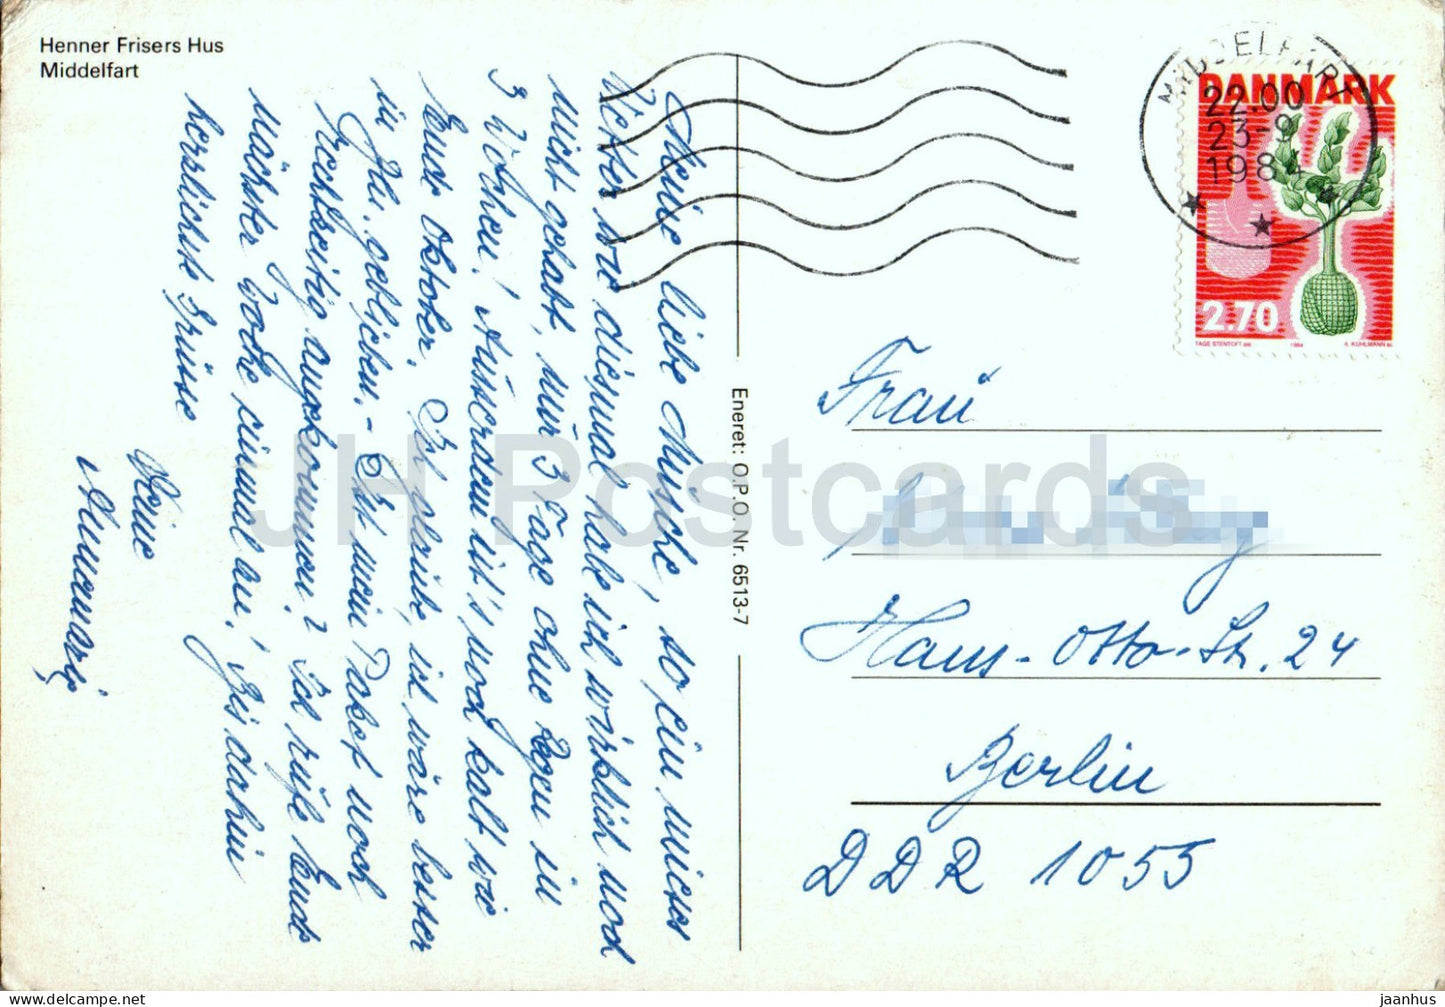 Henner Frisers Hus
Middelfart
Meine liebe Muschi, so ein mieses
Wetter wie diesmal habe ich wirklich noch
nicht gehabt, nur 3 Tage ohne Regen in
3 Wochen! Ausserdem ist's noch kalt wie
Ende Oktober. Ich glaub, ich wäre besser
in Bln. geblieben. - Ist mein Paket noch
rechtzeitig angekommen? Ich rufe Ende
nächster Woche einmal an! Bis dahin
herzlichste Grüsse
Deine
Annemarie
Eneret: O.P.O. Nr. 6513-7
MIDDELFART
22.00
23-9
1984
DANMARK
2.70
TAGE STENTOFT del. 1984 A. KÜHLMANN sc.
Frau
Hans-Otto-Str. 24
Berlin
DDR 1055
JH Postcards
jaanhus © delcampe.net